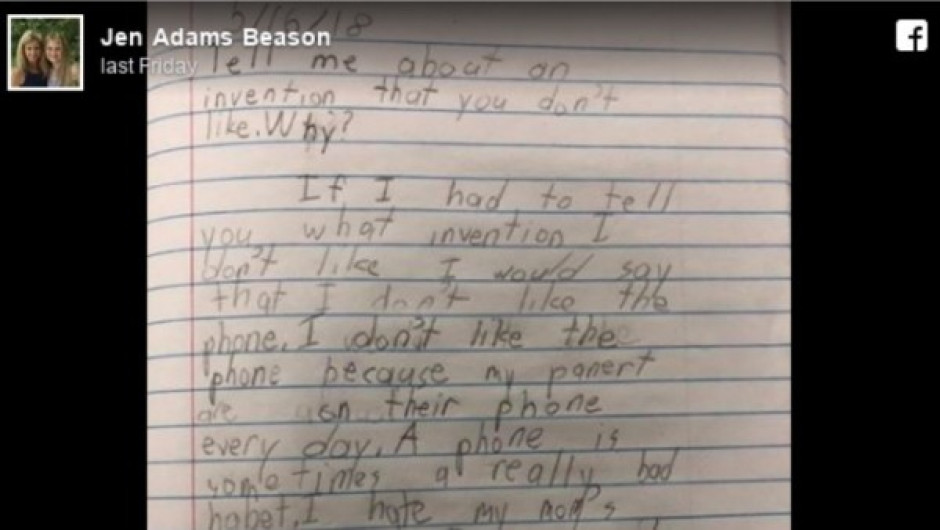 Jen Adams Beason
last Friday
5/16/18
Tell me about an
invention that you don't
like. Why?
If I had to tell
you what invention I
don't like I would say
that I don't like the
phone. I don't like the
phone because my panert
are on their phone
every day. A phone is
sometimes a really bad
habet. I hate my mom's